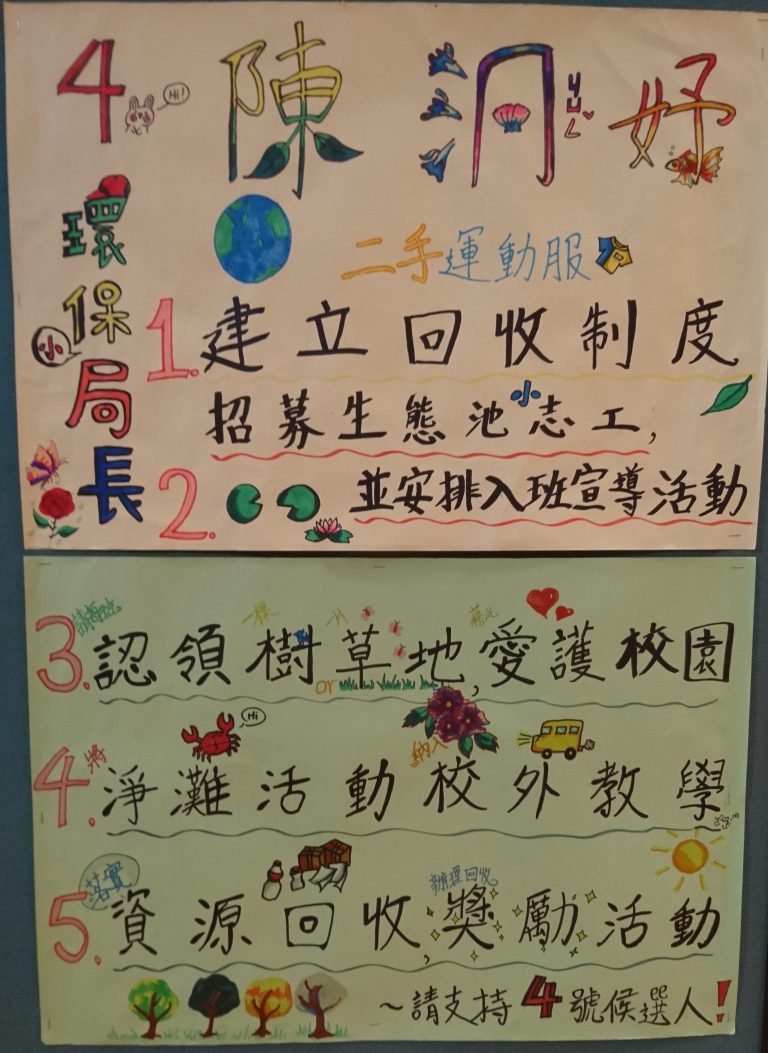 4 Hi! 陳泂妤
ㄐㄩㄥˇ
小環保局長
二手運動服
1. 建立回收制度
招募生態池小志工,
2. 並安排入班宣導活動
3. 請每班認領一棵樹or一片草地,藉此愛護校園
Hi
4. 將淨灘活動納入校外教學
5. 落實資源回收,辦理回收獎勵活動
~請支持4號候選人!